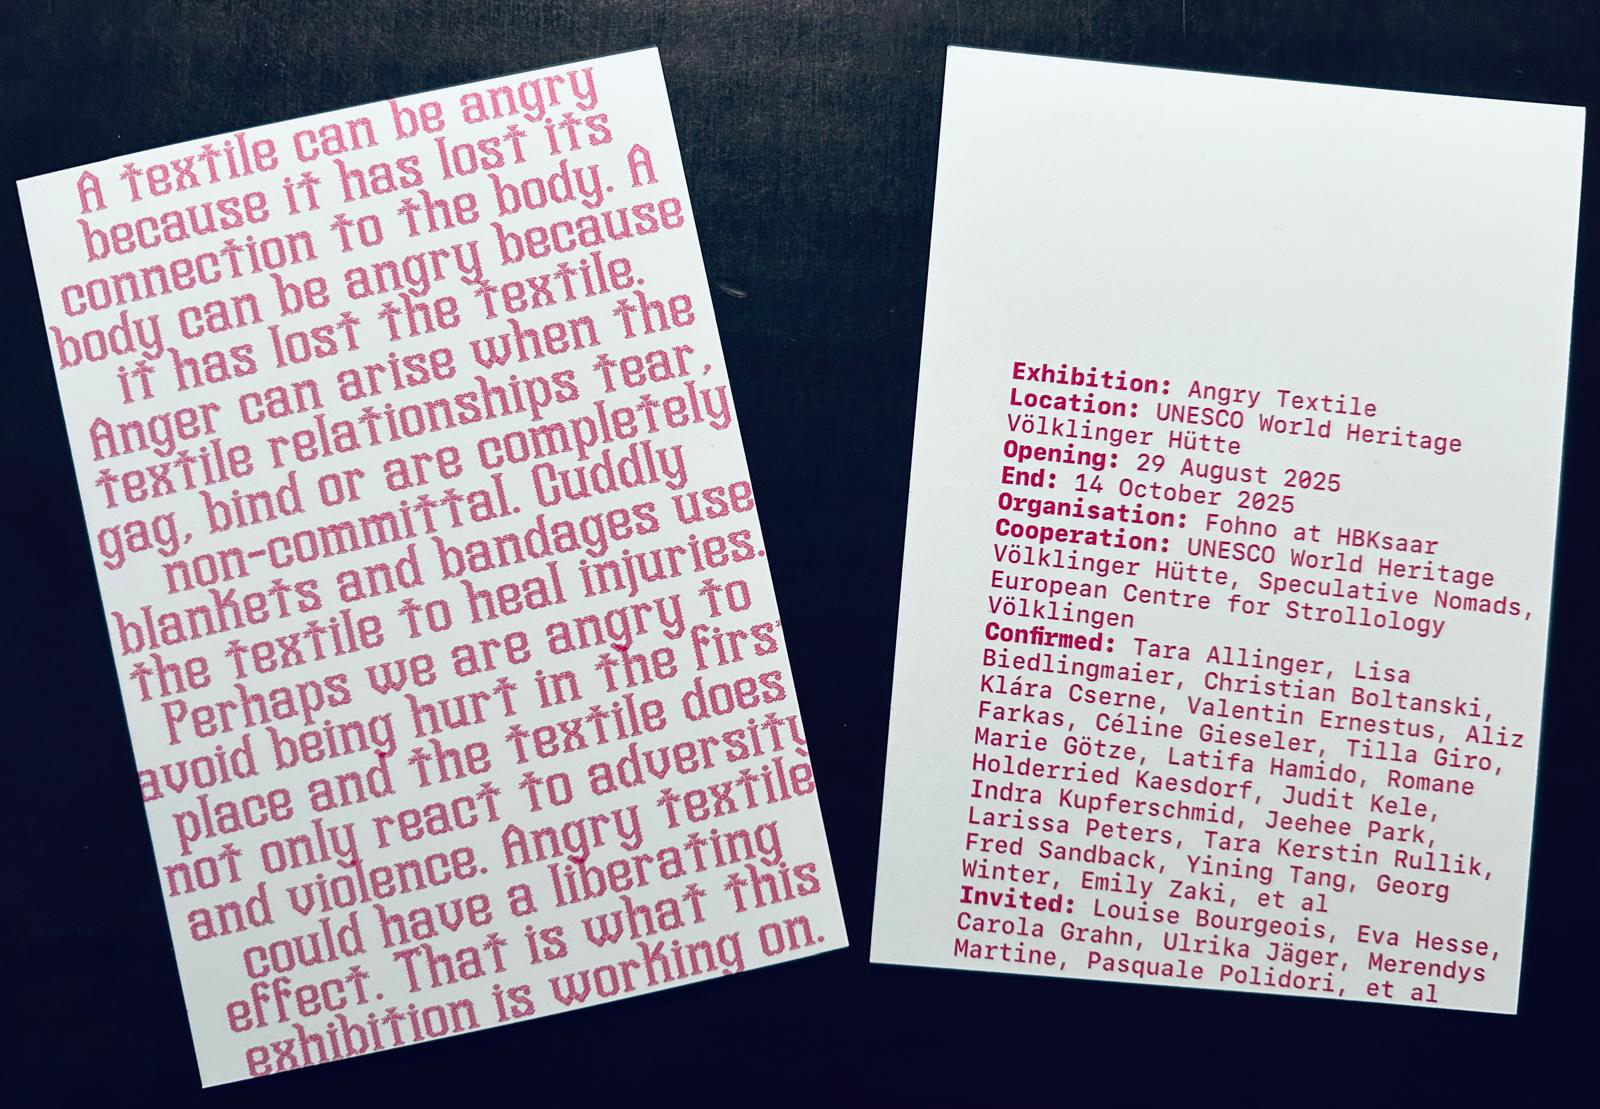 A textile can be angry
because it has lost its
connection to the body. A
body can be angry because
it has lost the textile.
Anger can arise when the
textile relationships tear,
gag, bind or are completely
non-committal. Cuddly
blankets and bandages use
the textile to heal injuries.
Perhaps we are angry to
avoid being hurt in the first
place and the textile does
not only react to adversity
and violence. Angry textile
could have a liberating
effect. That is what this
exhibition is working on.
Exhibition: Angry Textile
Location: UNESCO World Heritage
Völklinger Hütte
Opening: 29 August 2025
End: 14 October 2025
Organisation: Fohno at HBKsaar
Cooperation: UNESCO World Heritage
Völklinger Hütte, Speculative Nomads,
European Centre for Strollology
Völklingen
Confirmed: Tara Allinger, Lisa
Biedlingmaier, Christian Boltanski,
Klára Cserne, Valentin Ernestus, Aliz
Farkas, Céline Gieseler, Tilla Giro,
Marie Götze, Latifa Hamido, Romane
Holderried Kaesdorf, Judit Kele,
Indra Kupferschmid, Jeehee Park,
Larissa Peters, Tara Kerstin Rullik,
Fred Sandback, Yining Tang, Georg
Winter, Emily Zaki, et al
Invited: Louise Bourgeois, Eva Hesse,
Carola Grahn, Ulrika Jäger, Merendys
Martine, Pasquale Polidori, et al